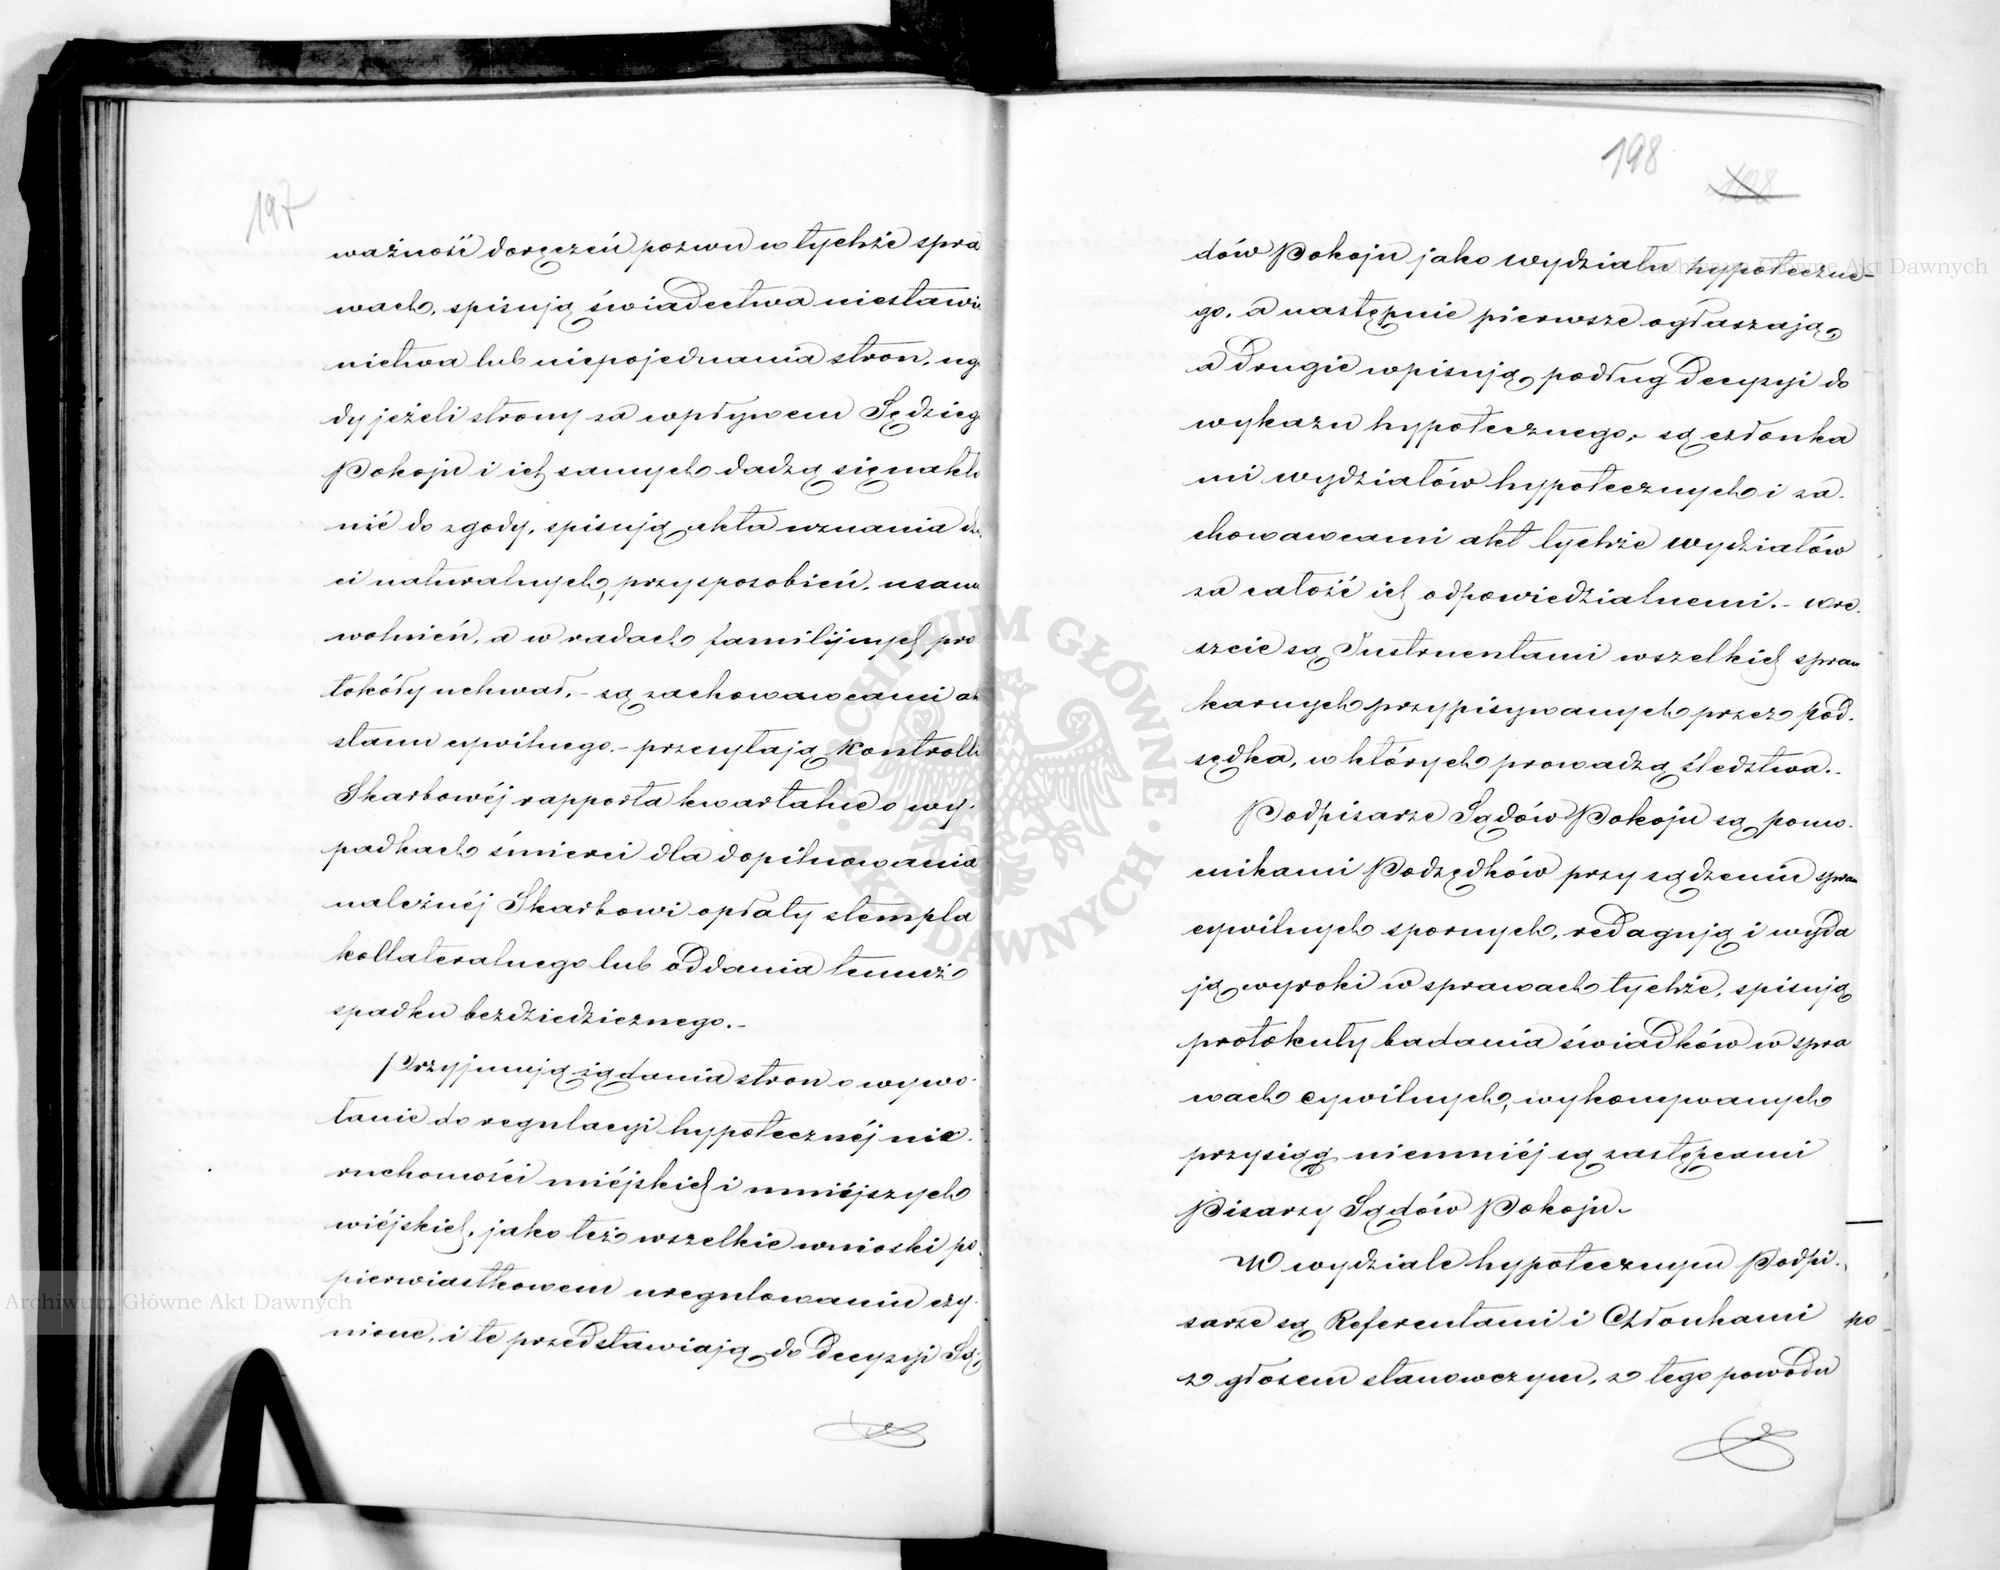 197
ważność doręczeń pozwu w tychże spra
wach, spisują świadectwa niestawin
nictwa lub niepojednania stron, ug
dy jeżeli strony za wpływem Sędzieg
Pokoju i ich samych dadzą się nakło
nić do zgody, spisują akta uznania dzi
ci naturalnych, przysposobień, usamo
wolnień, a w radach familijnych pro
tokóły uchwał, - są zachowawcami ak
stanu cywilnego. - przesyłają Kontrolli
Skarbowéj rapporta kwartalne o wy-
padkach śmierci dla dopilnowania
należnéj Skarbowi opłaty stempla
kollateralnego lub oddania temuż
spadku bezdziedzicznego. -
Przyjmują żądania stron o wywo-
łanie do regulacyi hypotecznéj nie-
ruchomości miéjskich i mniéjszych
wiéjskich, jako też wszelkie wnioski po
pierwiastkowem uregulowaniu czy-
nione, i te przedstawiają do Decyzyi Są-
198
198
dów Pokoju jako wydziału hypoteczne-
go, a następnie pierwsze ogłaszają,
a drugie wpisują podług Decyzyi do
wykazu hypotecznego, - są członka
mi wydziałów hypotecznych i za-
chowawcami akt tychże wydziałów
za całość ich odpowiedzialnemi. - wre-
szcie są Instruentami wszelkich spraw
karnych przypisywanych przez Pod-
sędka, w których prowadzą śledztwa. -
Podpisarze Sądów Pokoju są pomo-
cnikami Podsędków przy sądzeniu spraw
cywilnych spornych, redagują i wyda
ją wyroki w sprawach tychże, spisują
protokuły badania świadków w spra
wach cywilnych, wykonywanych
przysiąg niemniéj są zastępcami
Pisarzy Sądów Pokoju. -
W wydziale hypotecznym Podpi-
sarze są Referentami i Członkami
z głosem stanowczym, z tego powodu
po
Archiwum Główne Akt Dawnych
Archiwum Główne Akt Dawnych
ARCHIWUM GŁÓWNE · AKT DAWNYCH ·